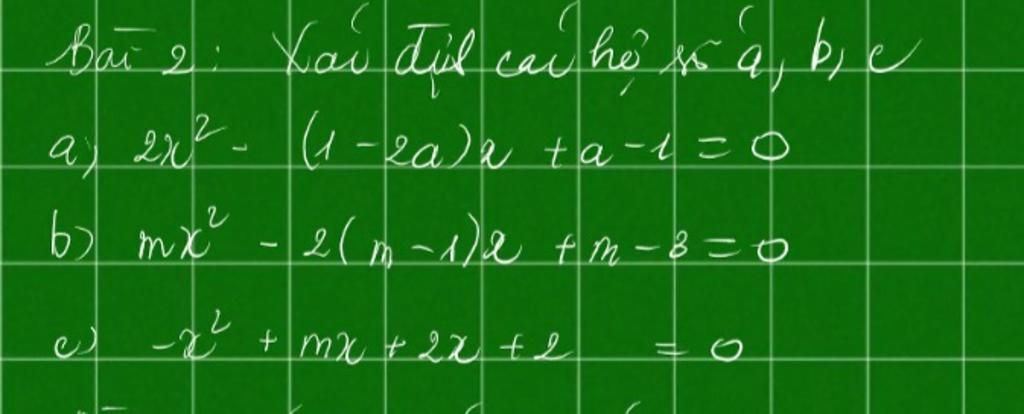 Bài 2: Xác định các hệ số a, b, c
a) 2x² - (1 - 2a)x + a - 1 = 0
b) mx² - 2(m - 1)x + m - 3 = 0
c) -x² + mx + 2x + 2 = 0